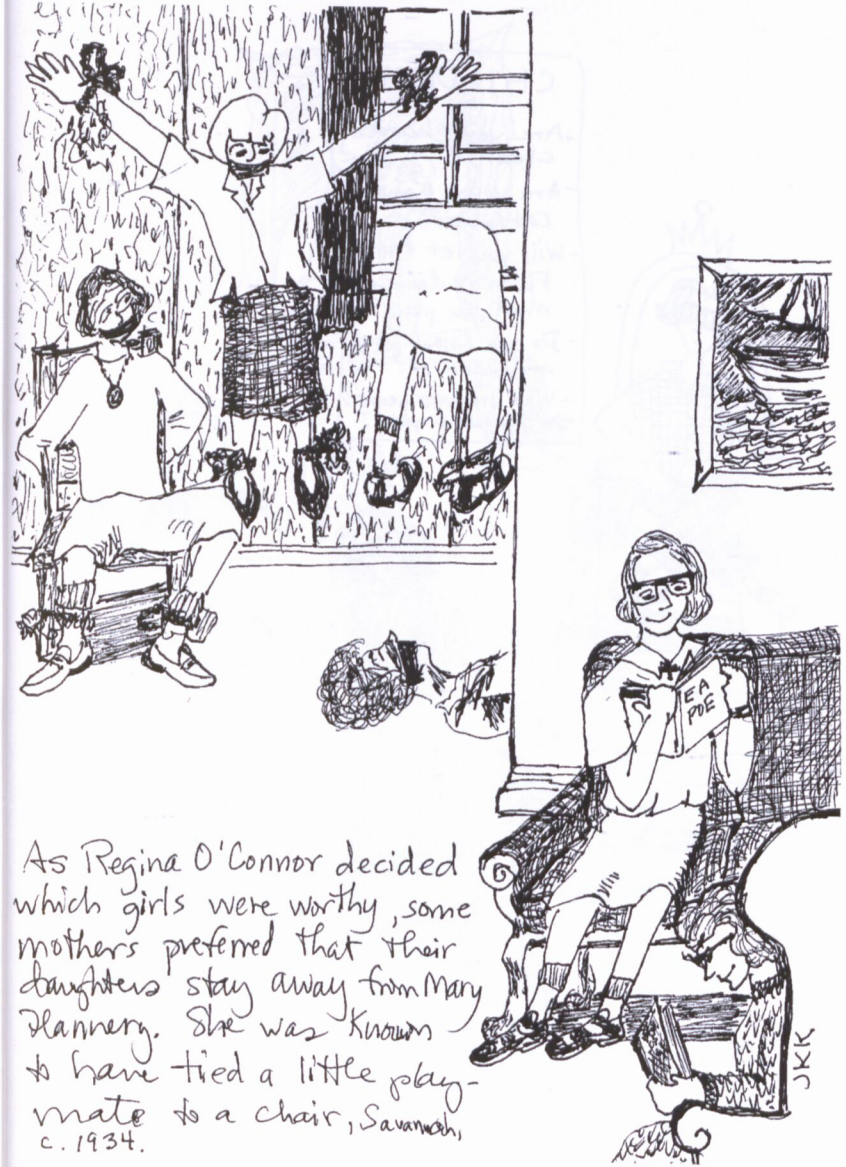 EA
POE
As Regina O'Connor decided
which girls were worthy, some
mothers preferred that their
daughters stay away from Mary
Flannery. She was known
to have tied a little play-
mate to a chair, Savannah,
c. 1934.
JKK